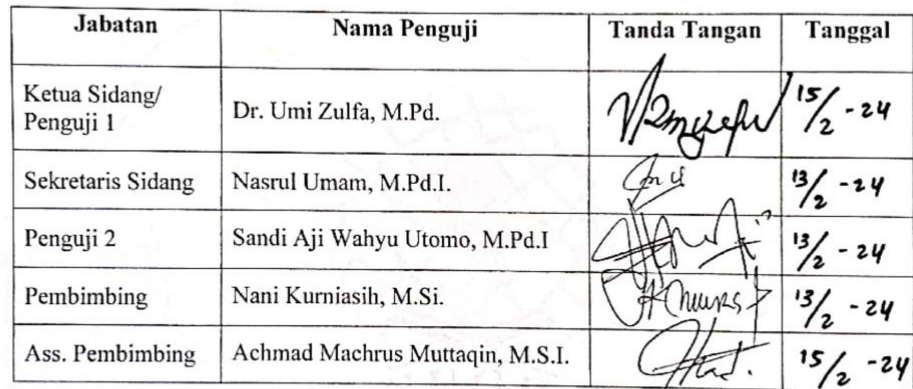 Jabatan Nama Penguji Tanda Tangan Tanggal
Ketua Sidang/
Penguji 1 Dr. Umi Zulfa, M.Pd. 15/2 - 24
Sekretaris Sidang Nasrul Umam, M.Pd.I. 13/2 - 24
Penguji 2 Sandi Aji Wahyu Utomo, M.Pd.I 13/2 - 24
Pembimbing Nani Kurniasih, M.Si. 13/2 - 24
Ass. Pembimbing Achmad Machrus Muttaqin, M.S.I. 15/2 - 24